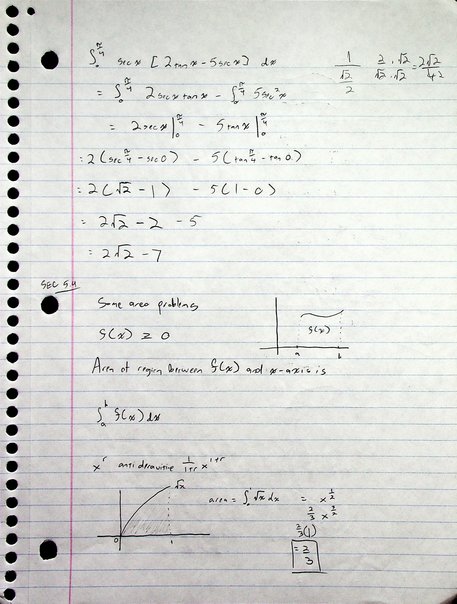 ∫₀^(π/4) sec x [2 tan x - 5 sec x] dx
1/(√2/2) 2/√2 · √2/√2 = 2√2/2
= ∫₀^(π/4) 2 sec x tan x - ∫₀^(π/4) 5 sec² x
= 2 sec x |₀^(π/4) - 5 tan x |₀^(π/4)
= 2(sec π/4 - sec 0) - 5(tan π/4 - tan 0)
= 2(√2 - 1) - 5(1 - 0)
= 2√2 - 2 - 5
= 2√2 - 7
SEC 5.4
Some area problems
f(x) ≥ 0
f(x)
a b
Area of region between f(x) and x-axis is
∫ₐᵇ f(x) dx
x^r antiderivative 1/(1+r) x^(1+r)
√x
area = ∫₀¹ √x dx = x^(1/2)
2/3 x^(3/2)
2/3 (1)
= 2/3
0 1